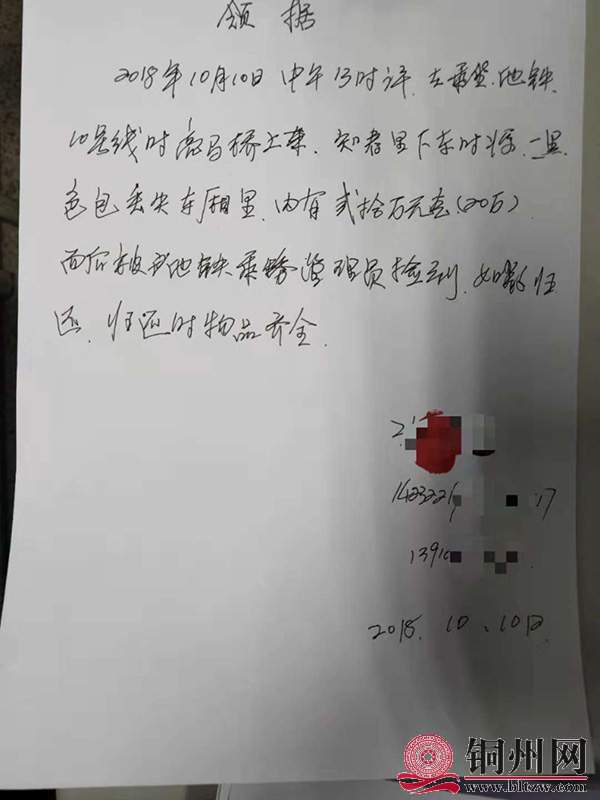 领据
2018年10月10日中午13时许,去乘坐地铁
10号线时底马桥上车,知春里下车时将一黑
色包丢失车厢里,内有贰拾万元(20万)
而后被地铁乘务管理员捡到,如数归
还,归还时物品齐全.
1423221 17
1391
2018.10.10日
铜州网
www.bltzw.com